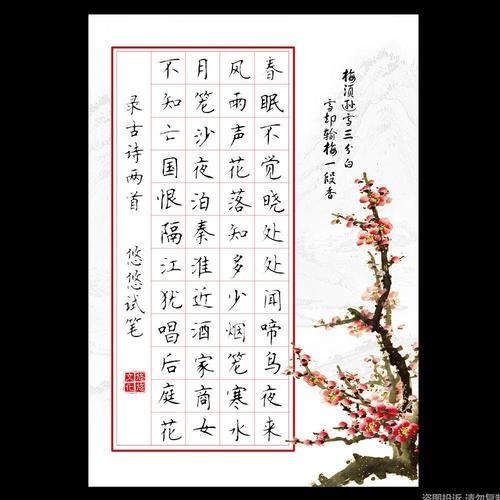 梅须逊雪三分白
雪却输梅一段香
春眠不觉晓处处闻啼鸟夜来
风雨声花落知多少烟笼寒水
月笼沙夜泊秦淮近酒家商女
不知亡国恨隔江犹唱后庭花
录古诗两首 悠悠试笔
悠悠文化
盗图投诉 请勿复